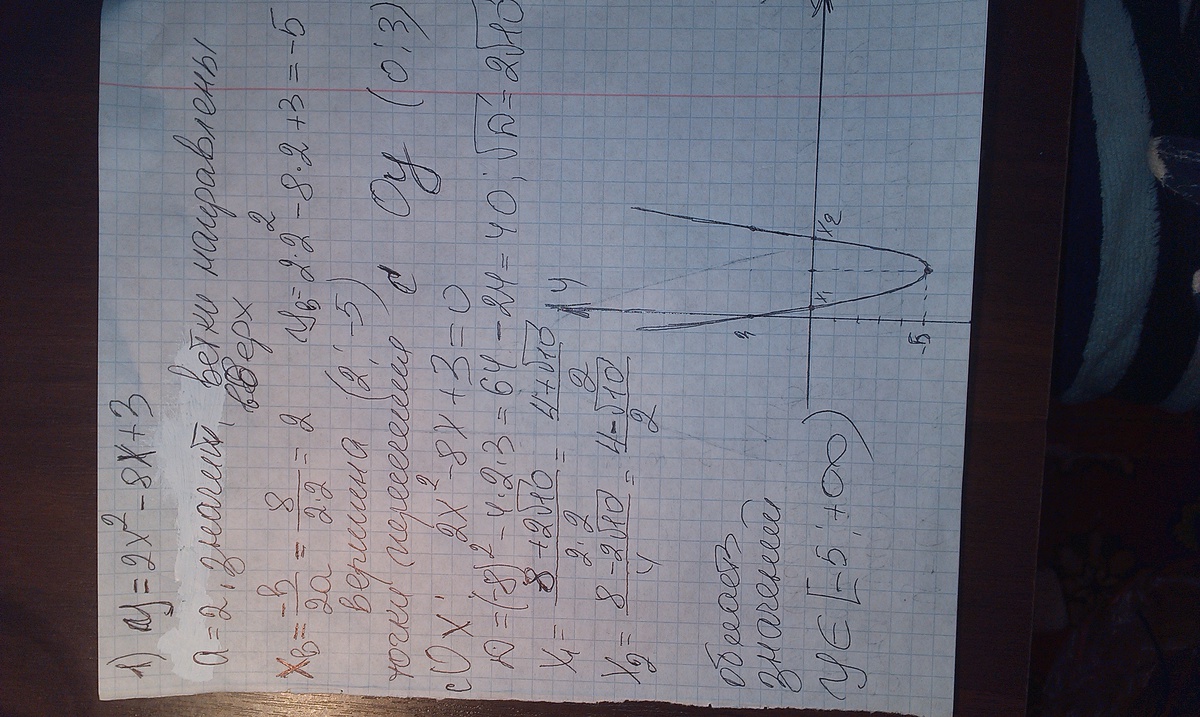 1) y = 2x² - 8x + 3
a = 2, значит, ветки направлены
вверх
xв = -b/2a = 8/2·2 = 2 yв = 2·2² - 8·2 + 3 = -5
вершина (2; -5)
точки пересечения с Oy (0; 3)
с Ox:
2x² - 8x + 3 = 0
D = (-8)² - 4·2·3 = 64 - 24 = 40; √D = 2√10
x₁ = 8 + 2√10/2·2 = 4 + √10/2
x₂ = 8 - 2√10/4 = 4 - √10/2
область
значений
y ∈ [-5; +∞)
y
3
x₁
x₂
-5